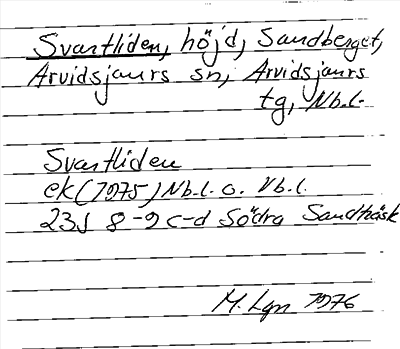 Svartliden, höjd, Sandberget,
Arvidsjaurs sn, Arvidsjaurs
tg, Nb.l.
Svartliden
ek (1975) Nb.l. o. Vb.l.
23J 8-9 c-d Södra Sandträsk
M. Lgn 1976